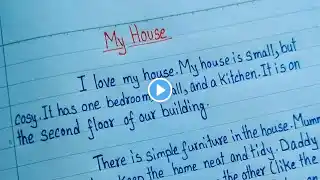 My House
I love my house. My house is small, but
cosy. It has one bedroom, all, and a kitchen. It is on
the second floor of our building.
There is simple furniture in the house. Mumm
keep the home neat and tidy. Daddy
the other (like the